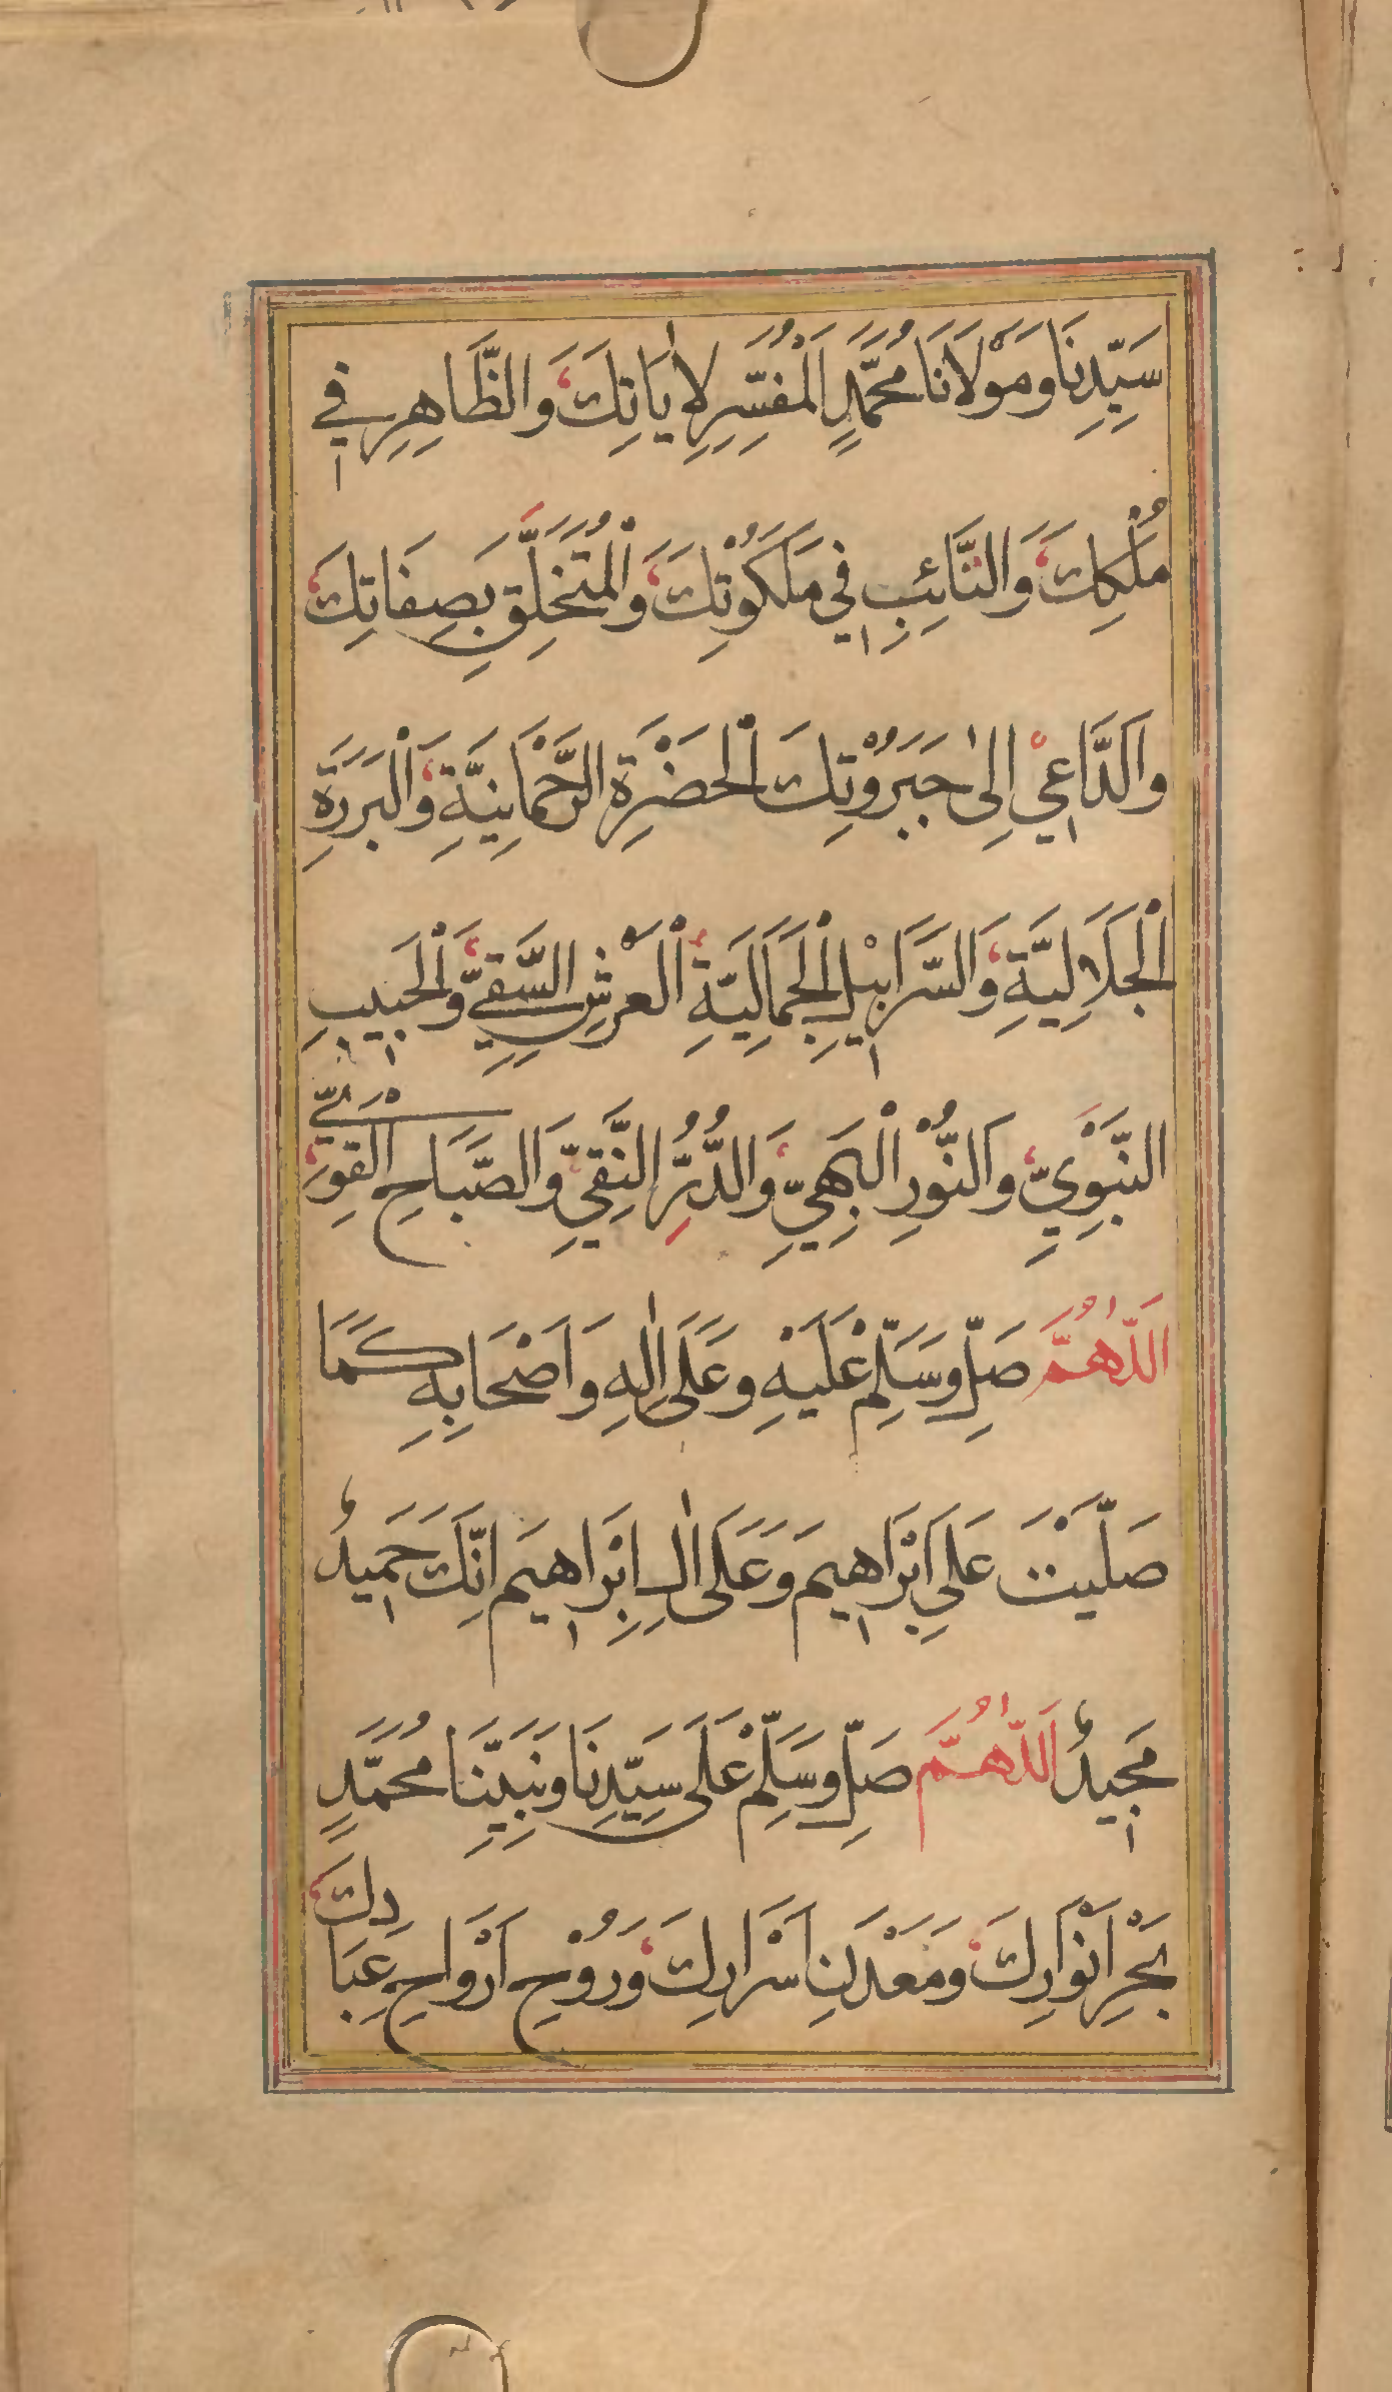 سَيِّدِنَا وَمَوْلَانَا مُحَمَّدٍ اَلْمُفَسِّرِ لِاٰيَاتِكَ وَالظَّاهِرِ فِي
مُلْكِكَ وَالنَّائِبِ فِي مَلَكُوْتِكَ وَالْمُتَخَلِّقِ بَصِفَاتِكَ
وَالدَّاعِيْ اِلىٰ جَبَرُوْتِكَ الْحَضْرَةِ الرَّحْمَانِيَّةِ وَالْبَرَرَةِ
الْجَلَالِيَّةِ وَالسَّرَابِيْلِ الْجَمَالِيَّةِ الْعَرْشِ السَّقِيِّ وَالْحَبِيبِ
النَّبَوِيِّ وَالنُّوْرِ الْبَهِيِّ وَالدُّرِّ النَّقِيِّ وَالصَّبَاحِ الْقَوِيِّ
اَللّٰهُمَّ صَلِّ وَسَلِّمْ عَلَيْهِ وَعَلَى اٰلِهِ وَاَصْحَابِهِ كَمَا
صَلَّيْتَ عَلَى اِبْرَاهِيمَ وَعَلَى اٰلِ اِبْرَاهِيمَ اِنَّكَ حَمِيدٌ
مَجِيدٌ اَللّٰهُمَّ صَلِّ وَسَلِّمْ عَلَى سَيِّدِنَا وَنَبِيِّنَا مُحَمَّدٍ
بَحْرِ اَنْوَارِكَ وَمَعْدَنِ اَسْرَارِكَ وَرُوْحِ اَرْوَاحِ عِبَادِكَ